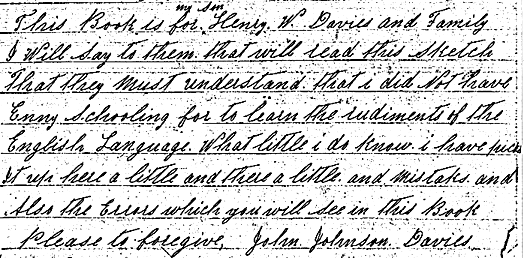 my son
This Book is for Henry. W. Davies and Family
I Will Say to them. that will read this Sketch
That they Must understand. that i did Not have
Enny Schooling for to learn the rudiments of the
English Language. What little i do know. i have pick
It up here a little and there a little. and Mistaks. and
Also the Errors which you will see in this Book
Please to foregive, John Johnson. Davies